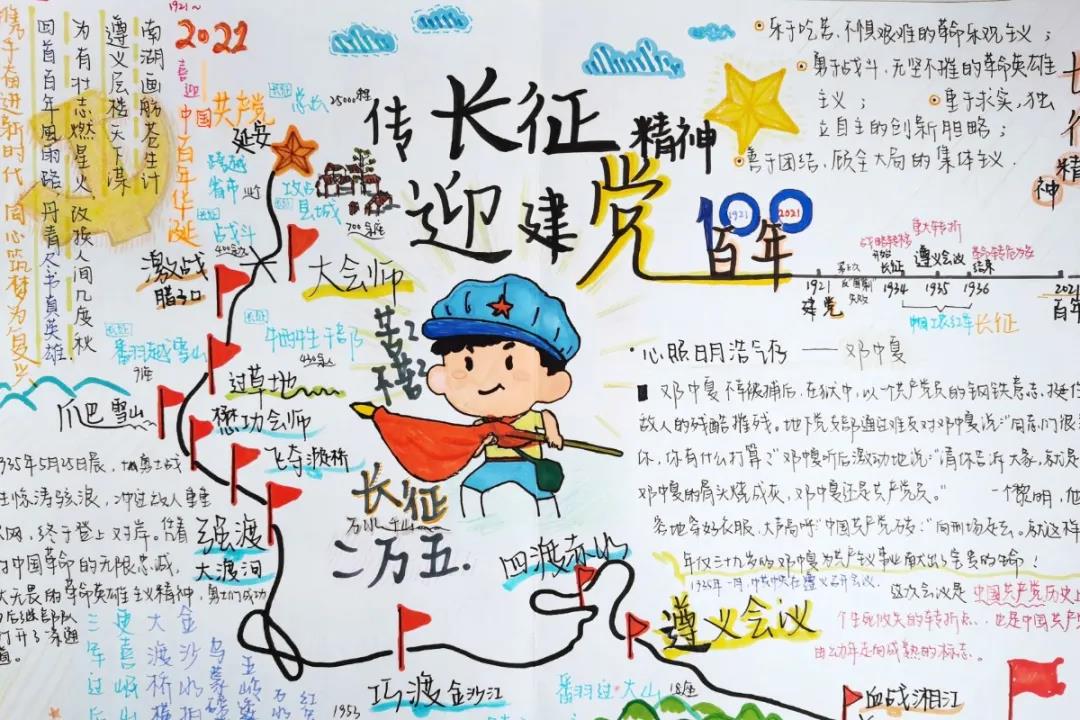 传长征精神
迎建党
100
1921
2021
百年
1921~
2021
喜迎
中国共产党
百年华诞
南湖画舫苍生计
遵义层楼天下谋
为有壮志燃星火
改换人间几度秋
回首百年风雨路
丹青尺书真英雄
携手奋进新时代
同心筑梦为复兴
延安
总长
25000
跨越
省市
攻占
县城
700
占战斗
400
激战
腊子口
大会师
翻越雪山
牺牲干部
过草地
爬巴雪山
懋功会师
飞夺泸桥
强渡
大渡河
巧渡金沙江
四渡赤水
遵义会议
血战湘江
翻过大山
18座
苦?
不苦?
长征
二万五.
乐于吃苦、不惧艰难的革命乐观主义；
勇于战斗，无坚不摧的革命英雄
主义；
重于求实，独
立自主的创新胆略；
善于团结、顾全大局的集体主义.
神
1921
建党
开始
长征
1934
遵义会议
1935
重大转折
结束
1936
2021
百年
长征
心照日月浩气存 —— 邓中夏
邓中夏不幸被捕后，在狱中，以一个共产党员的钢铁意志，挺住
敌人的残酷摧残。地下党支部通过难友对邓中夏说："同志们很
你，你有什么打算？"邓中夏听后激动地说："请你告诉大家，就是
邓中夏的骨头烧成灰，邓中夏还是共产党员。" 一个黎明，他
"中国共产党万岁！"向刑场走去。就这样
年仅三十九岁的邓中夏为共产主义事业献出了宝贵的生命！
1935年一月，中共中央在遵义召开会议.
这次会议是中国共产党历史上
个生死攸关的转折点，也是中国共产党
由幼年走向成熟的标志。
935年5月25日晨，
惊涛骇浪，冲过敌人重重
网，终于登上对岸。
中国革命的无限忠诚，
大无畏的革命英雄主义精神，勇士们成功
打开了通
道。
三军过后
更喜岷山
大渡桥横
金沙水拍
乌蒙
五岭
万
红